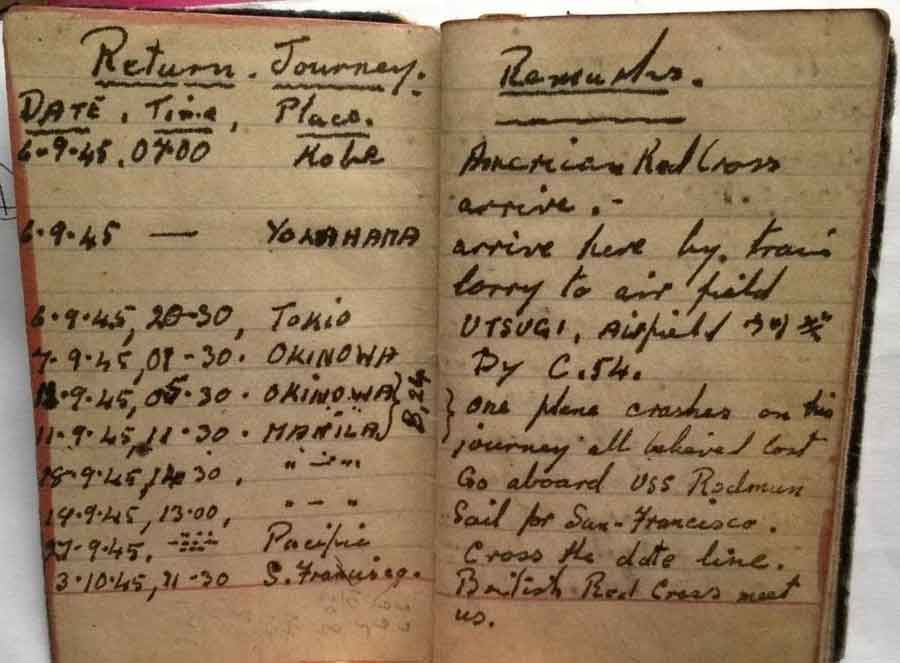 Return. Journey.
DATE. Time, Place.
6-9-45, 07.00 Kobe
6-9-45 — YOKAHAMA
6-9-45, 20-30, Tokio
7-9-45, 01-30. OKINOWA
-9-45, 05-30. OKINOWA
B.24
11-9-45, 11-30. MANILA
18-9-45, 30, " — "
19-9-45, 13.00, " - "
27-9-45, Pacific
3-10-45, 11-30 S. Francisco.
Remarks.
American Red Cross
arrive. -
arrive here by. train
lorry to air field
UTSUGI, Airfield
By C.54.
one plane crashes on this
journey all believed lost
Go aboard USS Rodman
Sail for San-Francisco.
Cross the date line.
British Red Cross meet
us.